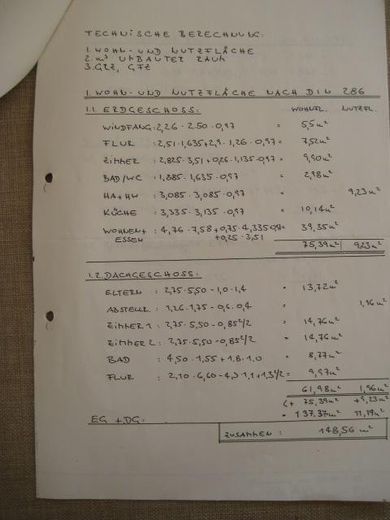 TECHNISCHE BERECHNUNG:
1. WOHN- UND NUTZFLÄCHE
2. m³ UMBAUTER RAUM
3. GRZ, GFZ
1. WOHN- UND NUTZFLÄCHE NACH DIN 286
1.1. ERDGESCHOSS: WOHNFL. NUTZFL.
WINDFANG: 2,26 · 2,50 · 0,97 = 5,5 m²
FLUR : 2,51 · 1,635 + 2,9 · 1,26 · 0,97 = 7,52 m²
ZIMMER : 2,825 · 3,51 + 0,26 · 1,135 · 0,97 = 9,90 m²
BAD/WC : 1,885 · 1,635 · 0,97 = 2,98 m²
HA + HW : 3,085 · 3,085 · 0,97 = 9,23 m²
KÜCHE : 3,335 · 3,135 · 0,97 = 10,14 m²
WOHNEN + : 4,76 · 7,58 + 0,75 · 4,335 = 39,35 m²
ESSEN + 0,25 · 3,51
75,39 m² 9,23 m²
1.2. DACHGESCHOSS:
ELTERN : 2,75 · 5,50 - 1,0 · 1,4 = 13,72 m²
ABSTELLR : 1,26 · 1,75 - 0,6 · 0,4 = 1,96 m²
ZIMMER 1 : 2,75 · 5,50 - 0,85²/2 = 14,76 m²
ZIMMER 2 : 2,75 · 5,50 - 0,85²/2 = 14,76 m²
BAD : 4,50 · 1,55 + 1,8 · 1,0 = 8,77 m²
FLUR : 2,10 · 6,60 - 4,3 · 1,1 + 1,3²/2 = 9,97 m²
61,98 m² 1,96 m²
+ 75,39 m² + 9,23 m²
EG + DG: = 137,37 m² 11,19 m²
ZUSAMMEN : 148,56 m²